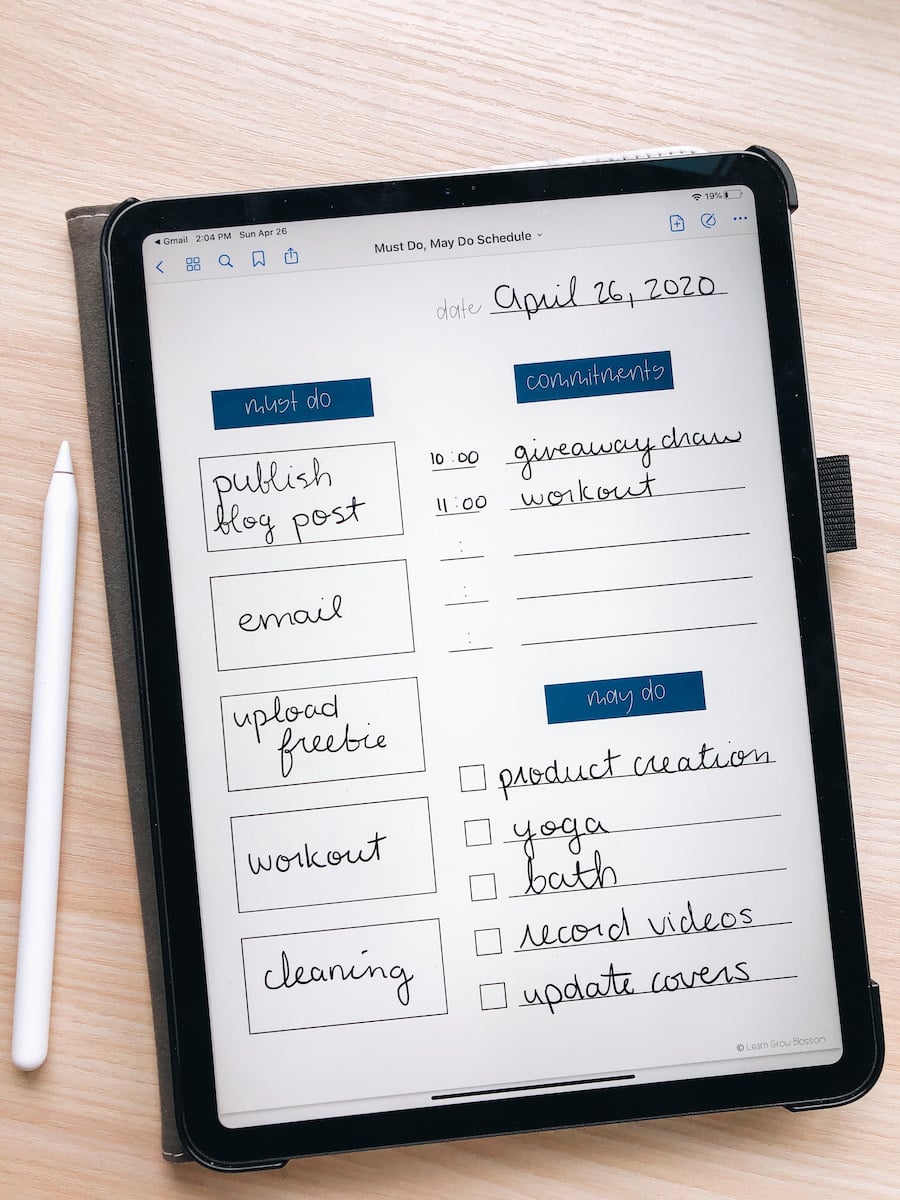 ◀ Gmail 2:04 PM Sun Apr 26
19%
Must Do, May Do Schedule
date April 26, 2020
must do
publish
blog post
email
upload
freebie
workout
cleaning
commitments
10:00 giveaway draw
11:00 workout
:
:
:
may do
product creation
yoga
bath
record videos
update covers
© Learn Grow Blossom